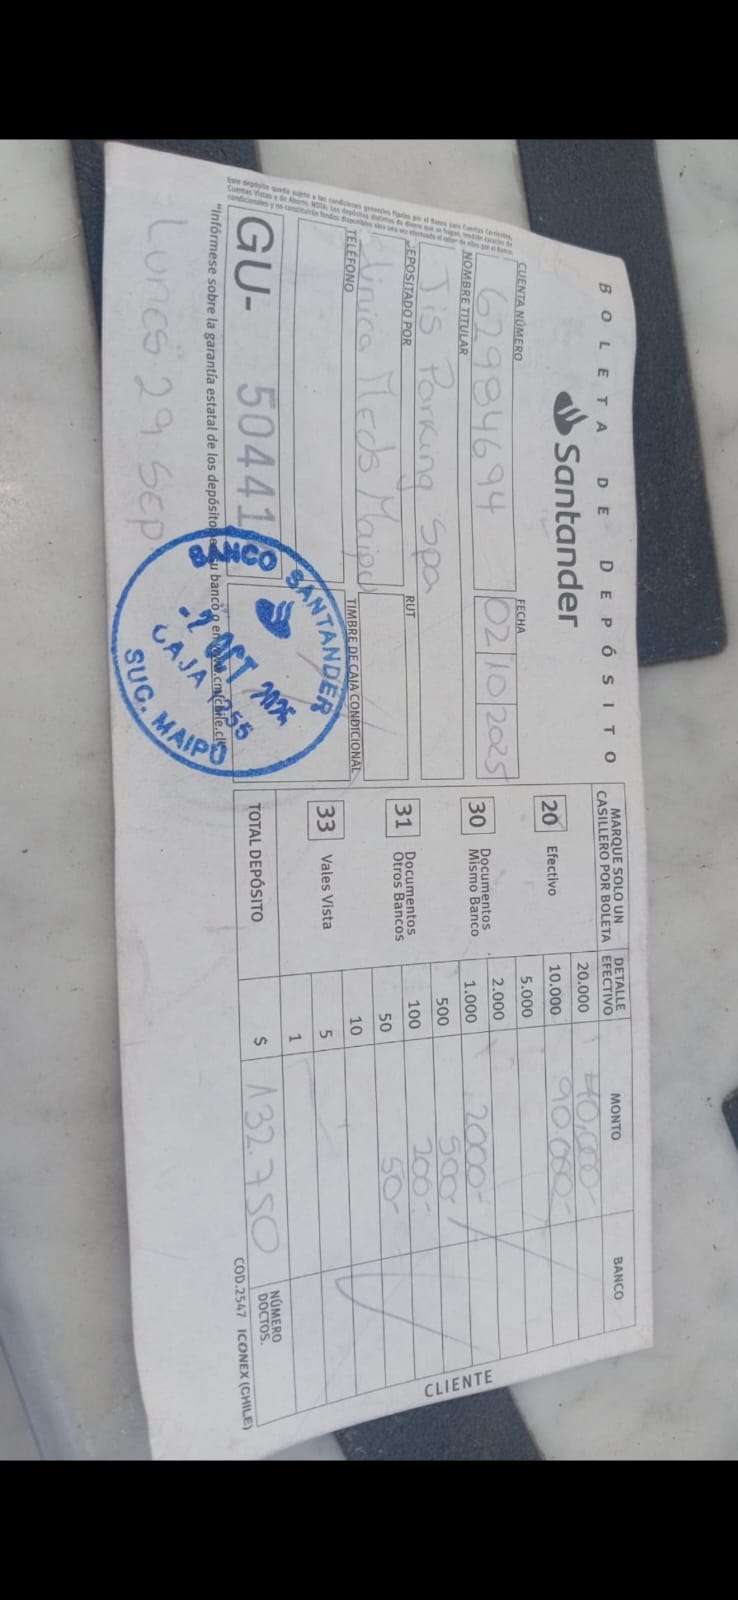 BOLETA DE DEPÓSITO
Santander
CUENTA NÚMERO
62984694
FECHA
02 10 2025
NOMBRE TITULAR
Jis Parking Spa
DEPOSITADO POR
Clinica Meds Maipu
RUT
TELÉFONO
TIMBRE DE CAJA CONDICIONAL
GU- 50441
Este depósito queda sujeto a las condiciones generales fijadas por el Banco para Cuentas Corrientes,
Cuentas Vistas y de Ahorro. NOTA: Los depósitos distintos de dinero que se hagan, tendrán carácter de
condicionales y no constituirán fondos disponibles sino una vez efectuado el cobro de ellos por el Banco
"Infórmese sobre la garantía estatal de los depósitos en su banco o en www.cmfchile.cl"
Lunes 29 Sep
BANCO SANTANDER
-2 OCT 2025
CAJA
SUC. MAIPÚ
MARQUE SOLO UN
CASILLERO POR BOLETA
DETALLE
EFECTIVO
MONTO
BANCO
20 Efectivo
30 Documentos
Mismo Banco
31 Documentos
Otros Bancos
33 Vales Vista
20.000 40.000-
10.000 90.000-
5.000
2.000
1.000 2000-
500 500-
100 200-
50 50-
10
5
1
TOTAL DEPÓSITO $ 132.750
NÚMERO
DOCTOS.
COD.2547 ICONEX (CHILE)
CLIENTE